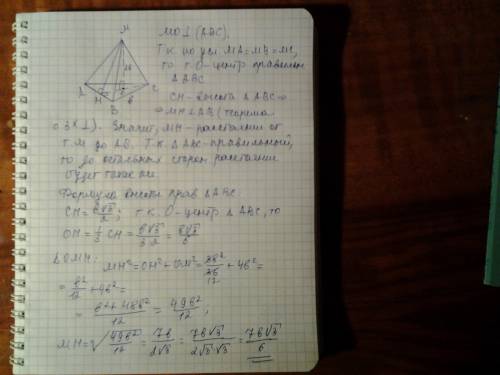 M
A
H
O
B
C
2b
b
MO⊥(ABC).
Т.к. по усл. MA=MB=MC,
то т.O-центр правильн.
ΔABC
CH-высота ΔABC⇒
⇒MH⊥AB (теорема
о 3х⊥). Значит, MH-расстояние от
т.M до AB. Т.к. ΔABC-правильный,
то до остальных сторон расстояние
будет таким же.
Формула высоты прав. ΔABC:
CH=b√3/2; т.к. O-центр ΔABC, то
OH=1/3 CH=b√3/3·2=b√3/6
ΔOMH: MH²=OH²+OM²=3b²/36+4b²=
12
=b²/12+4b²=
=b²+48b²/12=49b²/12;
MH=√49b²/12=7b/2√3=7b√3/2√3·√3=7b√3/6